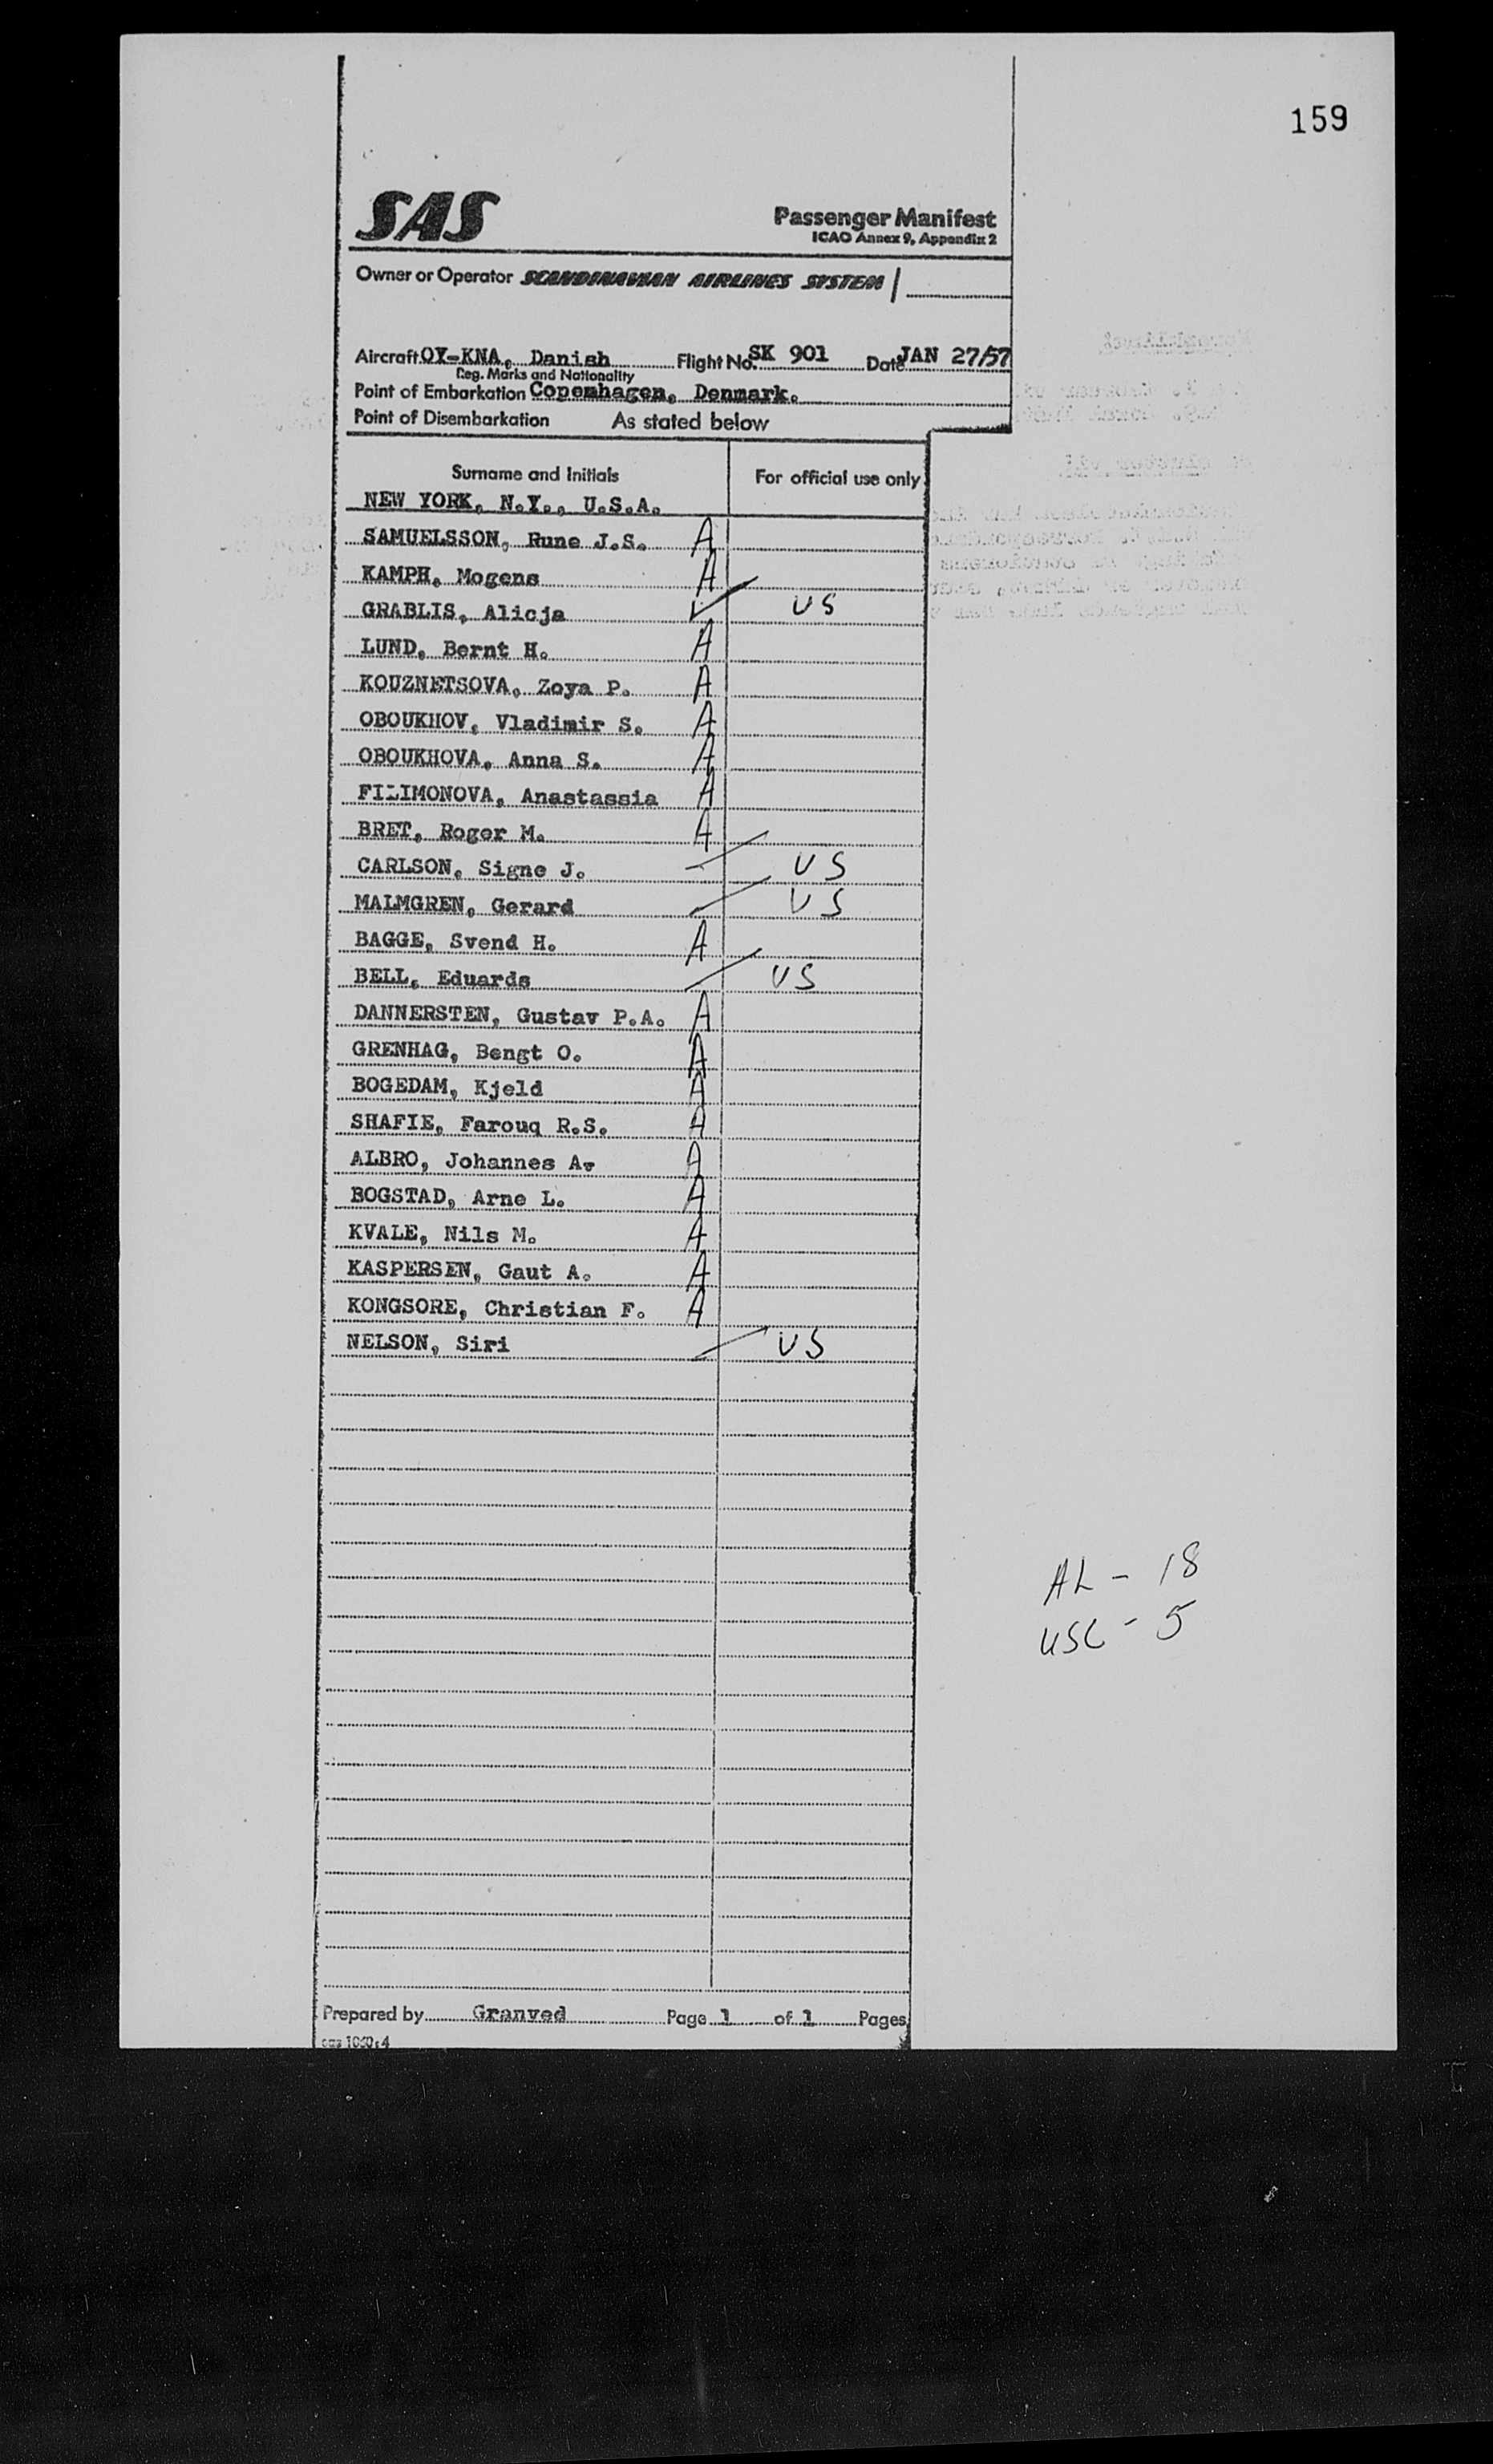 159
SAS
Passenger Manifest
ICAO Annex 9, Appendix 2
Owner or Operator SCANDINAVIAN AIRLINES SYSTEM
Aircraft OY-KNA, Danish Flight No. SK 901 Date JAN 27/57
Reg. Marks and Nationality
Point of Embarkation Copenhagen, Denmark.
Point of Disembarkation As stated below
Surname and Initials For official use only
NEW YORK, N.Y., U.S.A.
SAMUELSSON, Rune J.S. A
KAMPH, Mogens A
GRABLIS, Alicja ✓ US
LUND, Bernt H. A
KOUZNETSOVA, Zoya P. A
OBOUKHOV, Vladimir S. A
OBOUKHOVA, Anna S. A
FILIMONOVA, Anastassia A
BRET, Roger M. A
CARLSON, Signe J. ✓ US
MALMGREN, Gerard ✓ US
BAGGE, Svend H. A
BELL, Eduards ✓ US
DANNERSTEN, Gustav P.A. A
GRENHAG, Bengt O. A
BOGEDAM, Kjeld A
SHAFIE, Farouq R.S. A
ALBRO, Johannes A. A
BOGSTAD, Arne L. A
KVALE, Nils M. A
KASPERSEN, Gaut A. A
KONGSORE, Christian F. A
NELSON, Siri ✓ US
AL - 18
USC - 5
Prepared by Granved Page 1 of 1 Pages